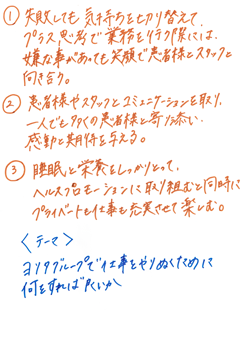 ① 失敗しても気持ちを切り替えて、
プラス思考で業務を行う際には、
嫌な事があっても笑顔で患者様とスタッフと
向き合う。
② 患者様やスタッフとコミュニケーションを取り、
一人でも多くの患者様と寄り添い、
感動と期待を与える。
③ 睡眠と栄養をしっかりとって、
ヘルスプロモーションに取り組むと同時に
プライベートも仕事も充実させて楽しむ。
〈テーマ〉
ヨリタグループで仕事をやりぬくために
何をすれば良いか